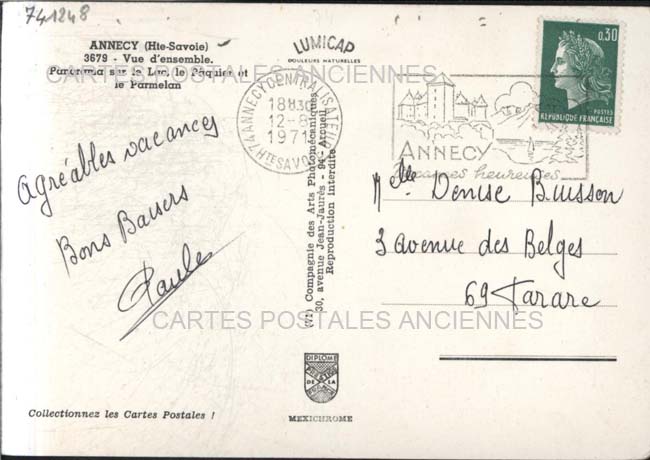 741248
ANNECY (Hte-Savoie)
3679 - Vue d'ensemble.
Panorama sur le Lac, le Pâquier et
le Parmelan
CARTES POSTALES ANCIENNES
LUMICAP
COULEURS NATURELLES
74 ANNECY CENTRALISATEUR
18H30
12-8
1971
HTE SAVOIE
ANNECY
vacances heureuses
0,30
POSTES
RÉPUBLIQUE FRANÇAISE
Agréables vacances
Bons Baisers
Paule
Compagnie des Arts Photomécaniques
30, avenue Jean-Jaurès - 94 - Arcueil
Reproduction interdite
Mlle Denise Buisson
3 avenue des Belges
69 Tarare
CARTES POSTALES ANCIENNES
DIPLOME
DE LA
Collectionnez les Cartes Postales !
MEXICHROME